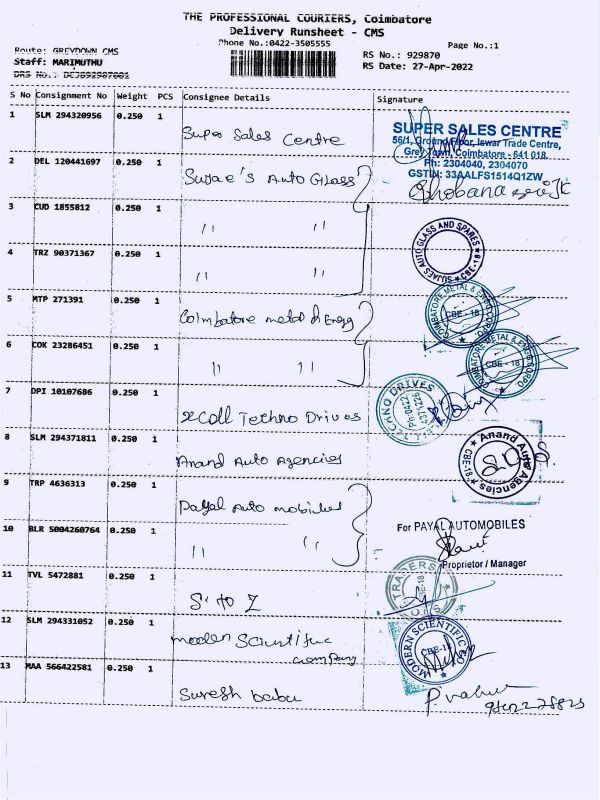 THE PROFESSIONAL COURIERS, Coimbatore
Delivery Runsheet - CMS
Phone No.:0422-3505555
Page No.:1
Route: GREYDOWN CMS
RS No.: 929870
Staff: MARIMUTHU
RS Date: 27-Apr-2022
DRS No.: DCJB92987001
S No Consignment No Weight PCS Consignee Details Signature
1 SLM 294320956 0.250 1 Super Sales Centre
SUPER SALES CENTRE
56/1, Ground Floor, Iswar Trade Centre,
Grey Town, Coimbatore - 641 018.
Ph: 2304040, 2304070
GSTIN: 33AALFS1514Q1ZW
2 DEL 120441697 0.250 1 Sujae's Auto Glass
3 CUD 1855812 0.250 1 " "
SUJAES AUTO GLASS AND SPARES
CBE-18
4 TRZ 90371367 0.250 1 " "
5 MTP 271391 0.250 1 Coimbatore metal
COIMBATORE METAL &
CBE - 18
6 COK 23286451 0.250 1 " "
COIMBATORE METAL &
CBE - 18
7 DPI 10107686 0.250 1 Techno Drives
TECHNO DRIVES
Ph:0422
8 SLM 294371811 0.250 1 Anand Auto Agencies
Anand Auto Agencies
CBE-18
9 TRP 4636313 0.250 1 Payal Auto mobiles
10 BLR 5004260764 0.250 1 " "
For PAYAL AUTOMOBILES
Proprietor / Manager
11 TVL 5472881 0.250 1 S to Z
TRADERS
12 SLM 294331052 0.250 1 modern Scientific
company
MODERN SCIENTIFIC
CBE-18
13 MAA 566422581 0.250 1 Suresh babu